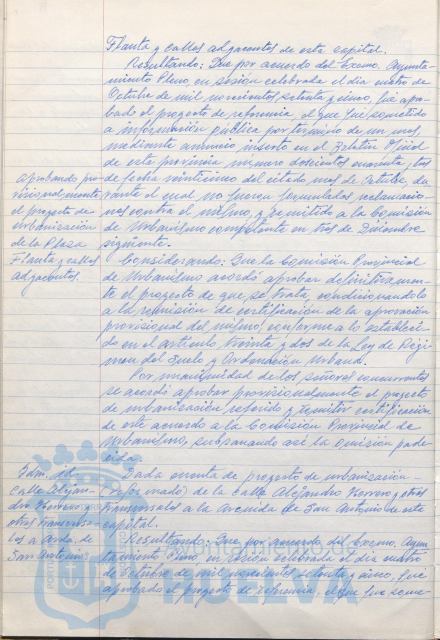 Planta y calles adyacentes de esta capital.
Resultando: Que por acuerdo del Excmo. Ayunta-
miento Pleno, en sesión celebrada el día cuatro de
Octubre de mil novecientos setenta y cinco, fué apro-
bado el proyecto de referencia, el que fué sometido
a información pública por término de un mes,
mediante anuncio inserto en el Boletín Oficial
de esta provincia número doscientos cuarenta y tres
de fecha veinticinco del citado mes de Octubre, du-
rante el cual no fueron formuladas reclamacio-
nes contra el mismo, y remitido a la Comisión
de Urbanismo competente en tres de Diciembre
siguiente.
Considerando: Que la Comisión Provincial
de Urbanismo acordó aprobar definitivamen-
te el proyecto de que se trata, condicionándolo
a la remisión de certificación de la aprobación
provisional del mismo, conforme a lo estableci-
do en el artículo treinta y dos de la Ley de Régi-
men del Suelo y Ordenación Urbana.
Por unanimidad de los señores concurrentes
se acordó aprobar provisionalmente el proyecto
de urbanización referido y remitir certificación
de este acuerdo a la Comisión Provincial de
Urbanismo, subsanando así la omisión pade-
cida.
Dada cuenta de proyecto de urbanización
(reformado) de la calle Alejandro Herrero y otras
transversales a la Avenida de San Antonio de esta
capital.
Resultando: Que por acuerdo del Excmo. Ayun-
tamiento Pleno, en sesión celebrada el día cuatro
de Octubre de mil novecientos setenta y cinco, fué
aprobado el proyecto de referencia, el que fué some-
Aprobando pro-
visionalmente
el proyecto de
urbanización
de la Plaza
Planta y calles
adyacentes.
Idm. id.
calle Alejan-
dro Herrero y
otras transversa-
les a Avda. de
San Antonio
Ayuntamiento de
HUELVA